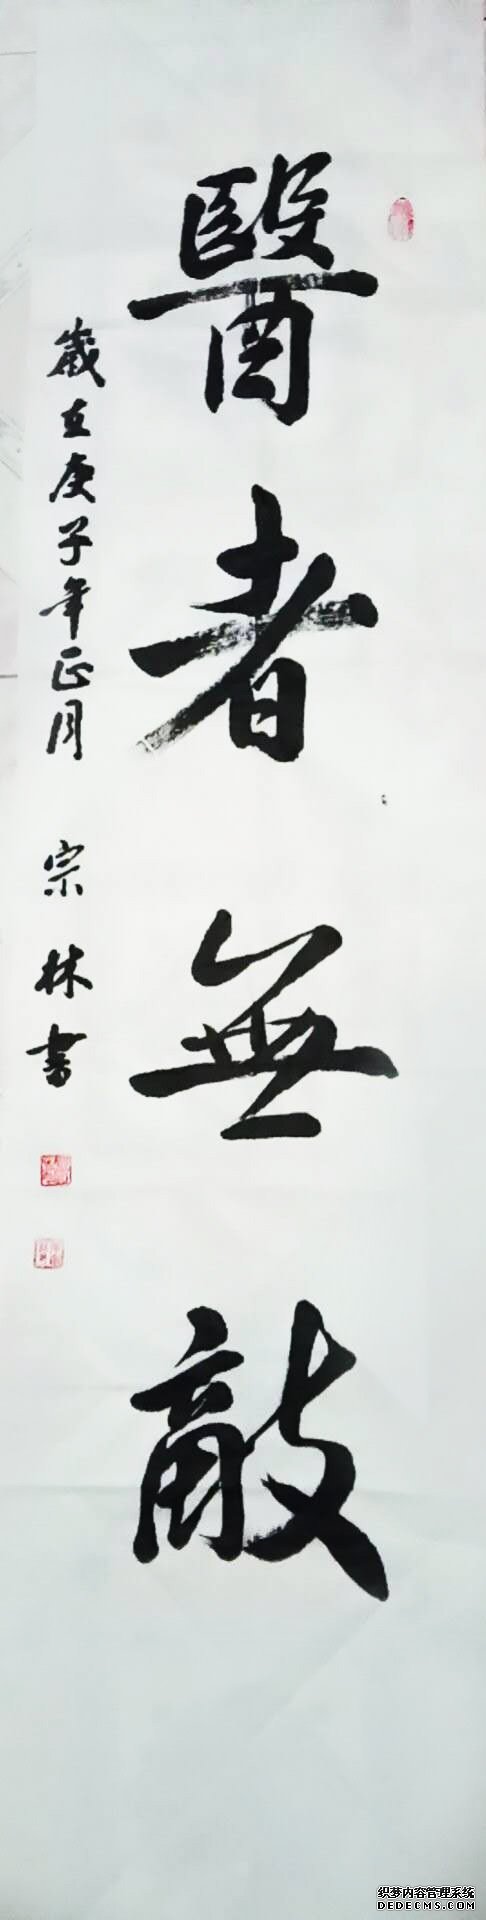 醫者無敵
歲在庚子年正月 宗林書
织梦内容管理系统
DEDECMS.COM